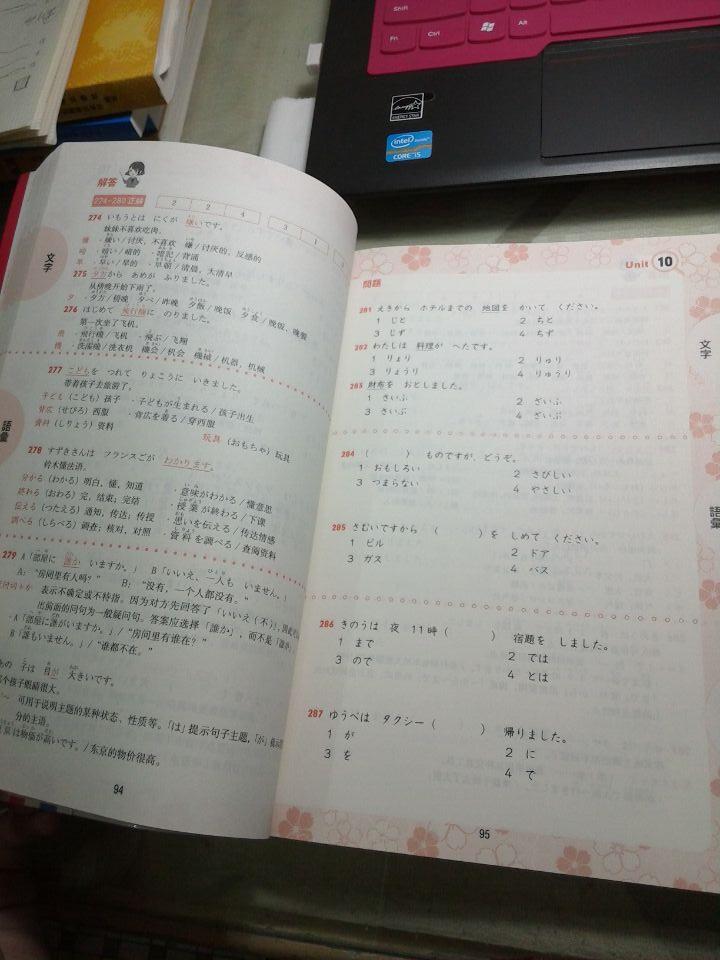 Shift
Fn Ctrl Alt
ENERGY STAR
intel
CORE i5
解答
274~280 正解
2 2 4
3 1
文字
274 いもうとは にくが 嫌いです。
妹妹不喜欢吃肉。
嫌 ·嫌い/讨厌，不喜欢 嫌/讨厌的，反感的
暗 ·暗い/暗的 ·暗記/背诵
早 ·早い/早的 ·早朝/清晨，大清早
275 夕方から あめが ふりました。
从傍晚开始下雨了。
夕 ·夕方/傍晚 夕べ/昨晚 夕飯/晚饭 夕食/晚饭，晚餐
276 はじめて 飛行機に のりました。
第一次坐了飞机。
飛 ·飛行機/飞机 ·飛ぶ/飞翔
機 ·洗濯機/洗衣机 機会/机会 機械/机器，机械
語彙
277 こどもを つれて りょこうに いきました。
带着孩子去旅游了。
子ども（こども）孩子 ·子どもが生まれる/孩子出生
背広（せびろ）西服 ·背広を着る/穿西服
資料（しりょう）资料 玩具（おもちゃ）玩具
278 すずきさんは フランスごが わかります。
铃木懂法语。
分かる（わかる）明白，懂，知道 ·意味がわかる/懂意思
終わる（おわる）完，结束；完结 ·授業が終わる/下课
伝える（つたえる）通知，传达；传授 ·思いを伝える/传达情感
調べる（しらべる）调查；核对，对照 ·資料を調べる/查阅资料
279 A「部屋に 誰か いますか。」 B「いいえ、一人も いません。」
A：“房间里有人吗？” B：“没有，一个人都没有。”
表示不确定或不特指。因为对方先回答了「いいえ（不）」，
出前面的问句为一般疑问句。答案应选择「誰か」，而不是「誰が」
·A「部屋に誰がいますか。」/“房间里有谁在？”
B「誰もいません。」/“谁都不在。”
あの 子は 目が 大きいです。
个孩子眼睛很大。
可用于说明主题的某种状态、性质等。「は」提示句子主题，「が」提示
分的主语。
京は物価が高いです。/东京的物价很高。
94
Unit 10
問題
文字
281 えきから ホテルまでの 地図を かいて ください。
1 じと 2 ちと
3 じず 4 ちず
282 わたしは 料理が へたです。
1 りょり 2 りゅり
3 りょうり 4 りゅうり
283 財布を おとしました。
1 さいふ 2 ざいふ
3 さいぶ 4 ざいぶ
語彙
284 （ ） ものですが、どうぞ。
1 おもしろい 2 さびしい
3 つまらない 4 やさしい
285 さむいですから （ ）を しめて ください。
1 ビル 2 ドア
3 ガス 4 バス
286 きのうは 夜 11時（ ） 宿題を しました。
1 まで 2 では
3 ので 4 とは
287 ゆうべは タクシー（ ） 帰りました。
1 が 2 に
3 を 4 で
95